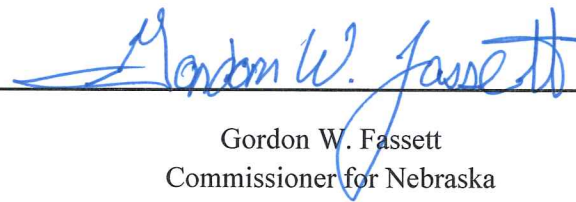 Gordon W. Fassett
Gordon W. Fassett
Commissioner for Nebraska